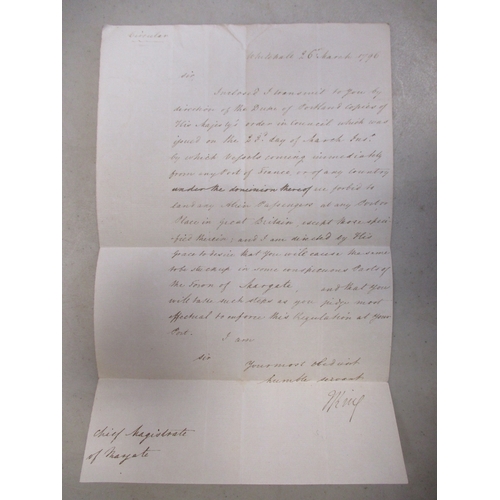 Circular
Whitehall 26 March 1796
Sir,
Inclosed I transmit to you by
direction of the Duke of Portland Copies of
His Majesty's order in Council which was
issued on the 23d day of March Inst
by which Vessels coming immediately
from any Port of France, or of any Country
under the dominion thereof are forbid to
land any Alien Passengers at any Port or
Place in Great Britain, except those speci-
fied therein; and I am directed by His
Grace to desire that you will cause the same
to be stuck up in some conspicuous Parts of
the Town of Margate, and that you
will take such steps as you judge most
effectual to enforce this Regulation at your
Port.
I am
Sir
Your most obedient
humble servant
J King
Chief Magistrate
of Margate